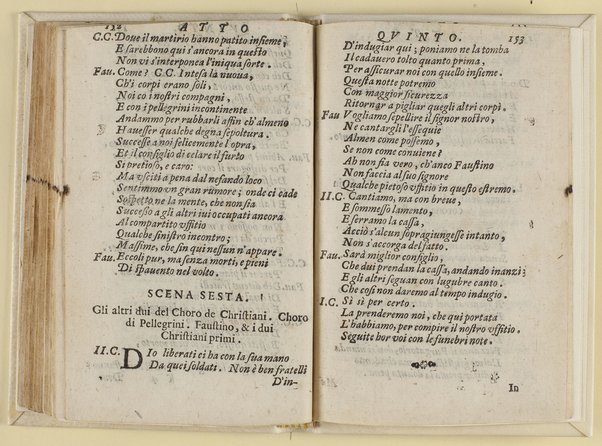 132 ATTO
C.C. Doue il martirio hanno patito insieme,
E sarebbono qui s'ancora in questo
Non vi s'interponea l'iniqua sorte.
Fau. Come? C.C. Intesa là nuoua,
Ch'i corpi erano soli,
Noi co i nostri compagni,
E con i pellegrini incontinente
Andammo per rubbarli affin ch'almeno
Hauesser qualche degna sepoltura.
Successe a noi felicemente l'opra,
Et il consiglio di celare il furto
Si pretioso, e caro:
Ma vsciti a pena dal nefando loco
Sentimmo vn gran rumore; onde ci cade
Sospetto ne la mente, che non sia
Successo a gli altri iui occupati ancora
Al compartito vffitio
Qualche sinistro incontro;
Massime, che fin qui nessun n'appare.
Fau. Eccoli pur, ma senza morti, e pieni
Di spauento nel volto.
SCENA SESTA.
Gli altri dui del Choro de Christiani. Choro
di Pellegrini. Faustino, & i dui
Christiani primi.
II.C. DIo liberati ci ha con la sua mano
Da quei soldati. Non è ben fratelli
D'in-
QVINTO. 133
D'indugiar qui; poniamo ne la tomba
Il cadauero tolto quanto prima,
Per assicurar noi con quello insieme.
Questa notte potremo
Con maggior sicurezza
Ritornar a pigliar quegli altri corpi.
Fau Vogliamo sepellire il signor nostro,
Ne cantargli l'essequie
Almen come possemo,
Se non come conuiene?
Ah non fia vero, ch'anco Faustino
Non faccia al suo signore
Qualche pietoso vffitio in questo estremo.
II.C. Cantiamo, ma con breue,
E sommesso lamento,
E serriamo la cassa,
Acciò s'alcun sopragiungesse intanto,
Non s'accorga del fatto.
Fau. Sarà miglior consiglio,
Che dui prendan la cassa, andando inanzi;
E gli altri seguan con lugubre canto.
Che così non daremo al tempo indugio.
I.C. Sì sì per certo.
La prenderemo noi, che qui portata
L'habbiamo, per compire il nostro vffitio.
Seguite hor voi con le funebri note.
In